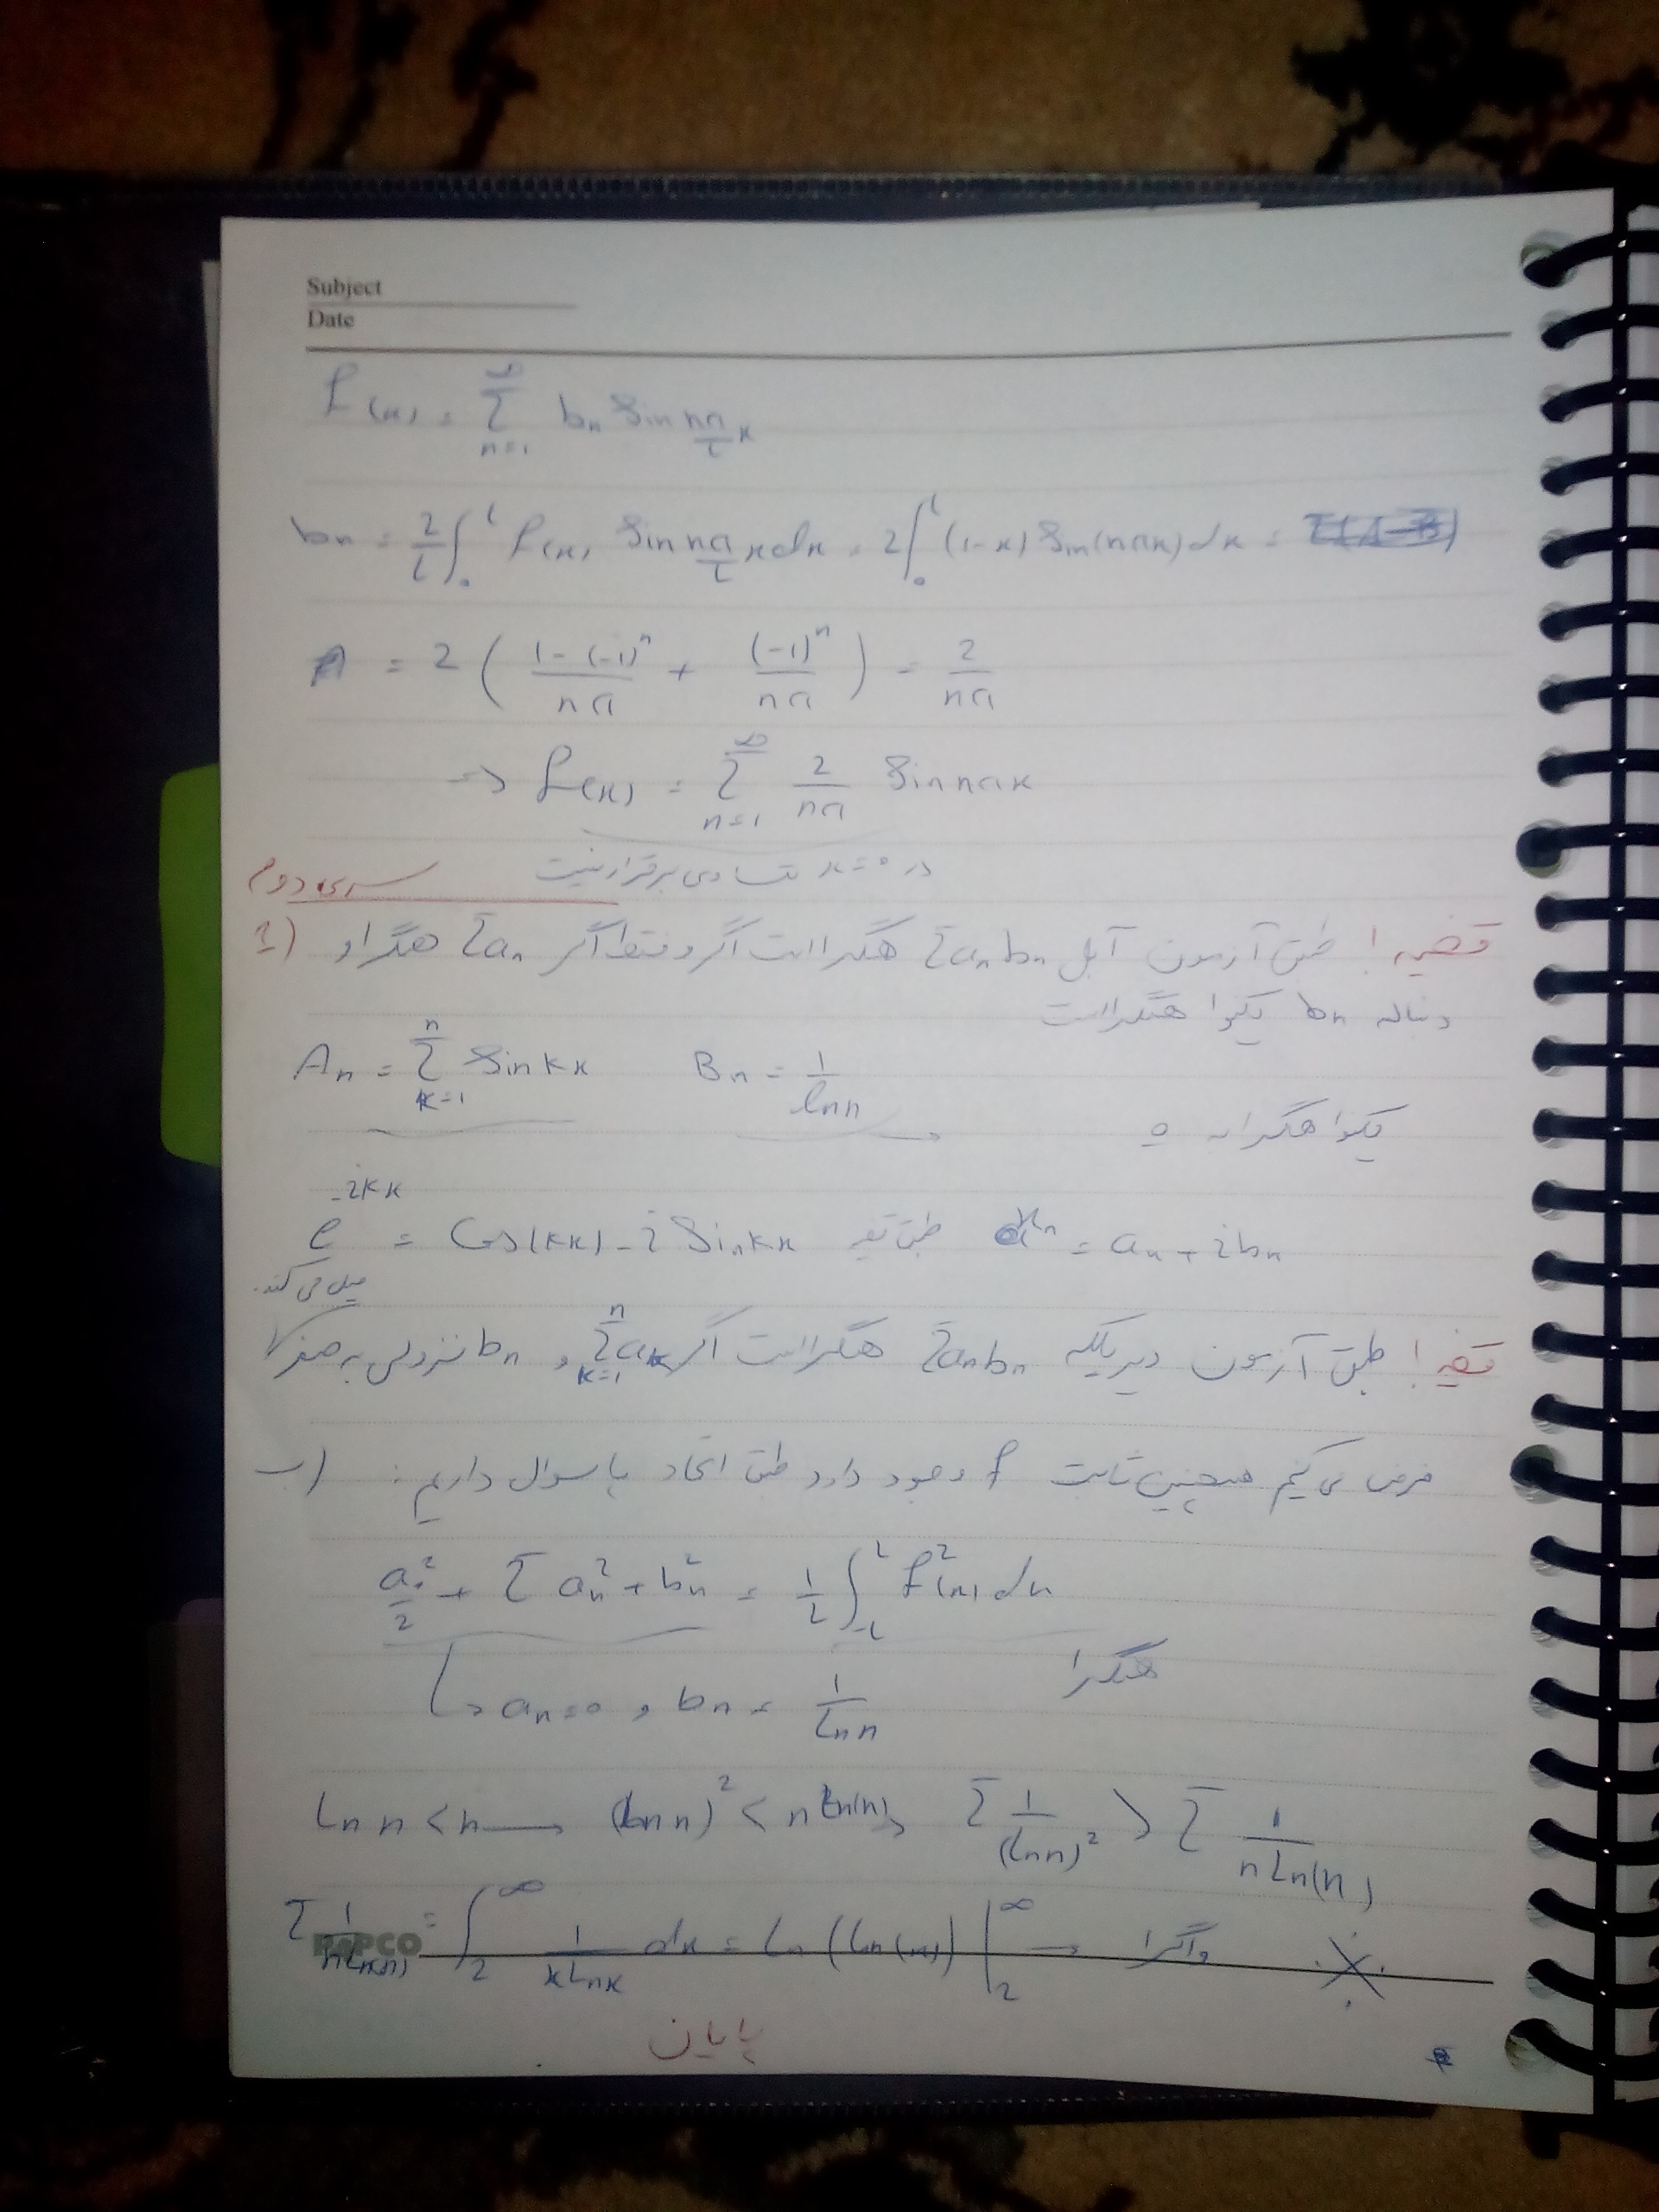 Subject
Date
f(x) = ∑_{n=1}^{∞} b_n Sin nπ/L x
b_n = 2/L ∫_0^L f(x) Sin nπ/L x dx = 2 ∫_0^1 (1-x) Sin(nπx) dx =
= 2 ( (1-(-1)^n)/nπ + (-1)^n/nπ ) = 2/nπ
=> f(x) = ∑_{n=1}^{∞} 2/nπ Sin nπx
در x=0 تساوی برقرار نیست
سری دوم
1) قضیه! طبق آزمون آبل ∑a_n b_n همگرا است اگر و فقط اگر ∑a_n همگرا و
دنباله b_n یکنوا همگرا است
A_n = ∑_{k=1}^{n} Sin kx B_n = 1/ln n
یکنوا همگرا به 0
e^{-ikx} = Cos(kx) - i Sin kx طبق α_n = a_n + i b_n
قضیه! طبق آزمون دیریکله ∑a_n b_n همگرا است اگر ∑_{k=1}^{n} a_k و b_n نزولی به صفر
میل می کند.
ب) فرض می کنیم همچنین تابت f وجود دارد طبق اتحاد پارسوال داریم:
a_0^2/2 + ∑ a_n^2 + b_n^2 = 1/L ∫_{-L}^{L} f^2(x) dx
همگرا
↳ a_n = 0 , b_n = 1/Ln n
Ln n < n → (Ln n)^2 < n Ln(n) → ∑ 1/(Ln n)^2 > ∑ 1/(n Ln(n))
∑ 1/(n Ln(n)) = ∫_2^∞ 1/(x Ln x) dx = Ln (Ln(x)) |_2^∞ → واگرا ※
PAPCO
پایان